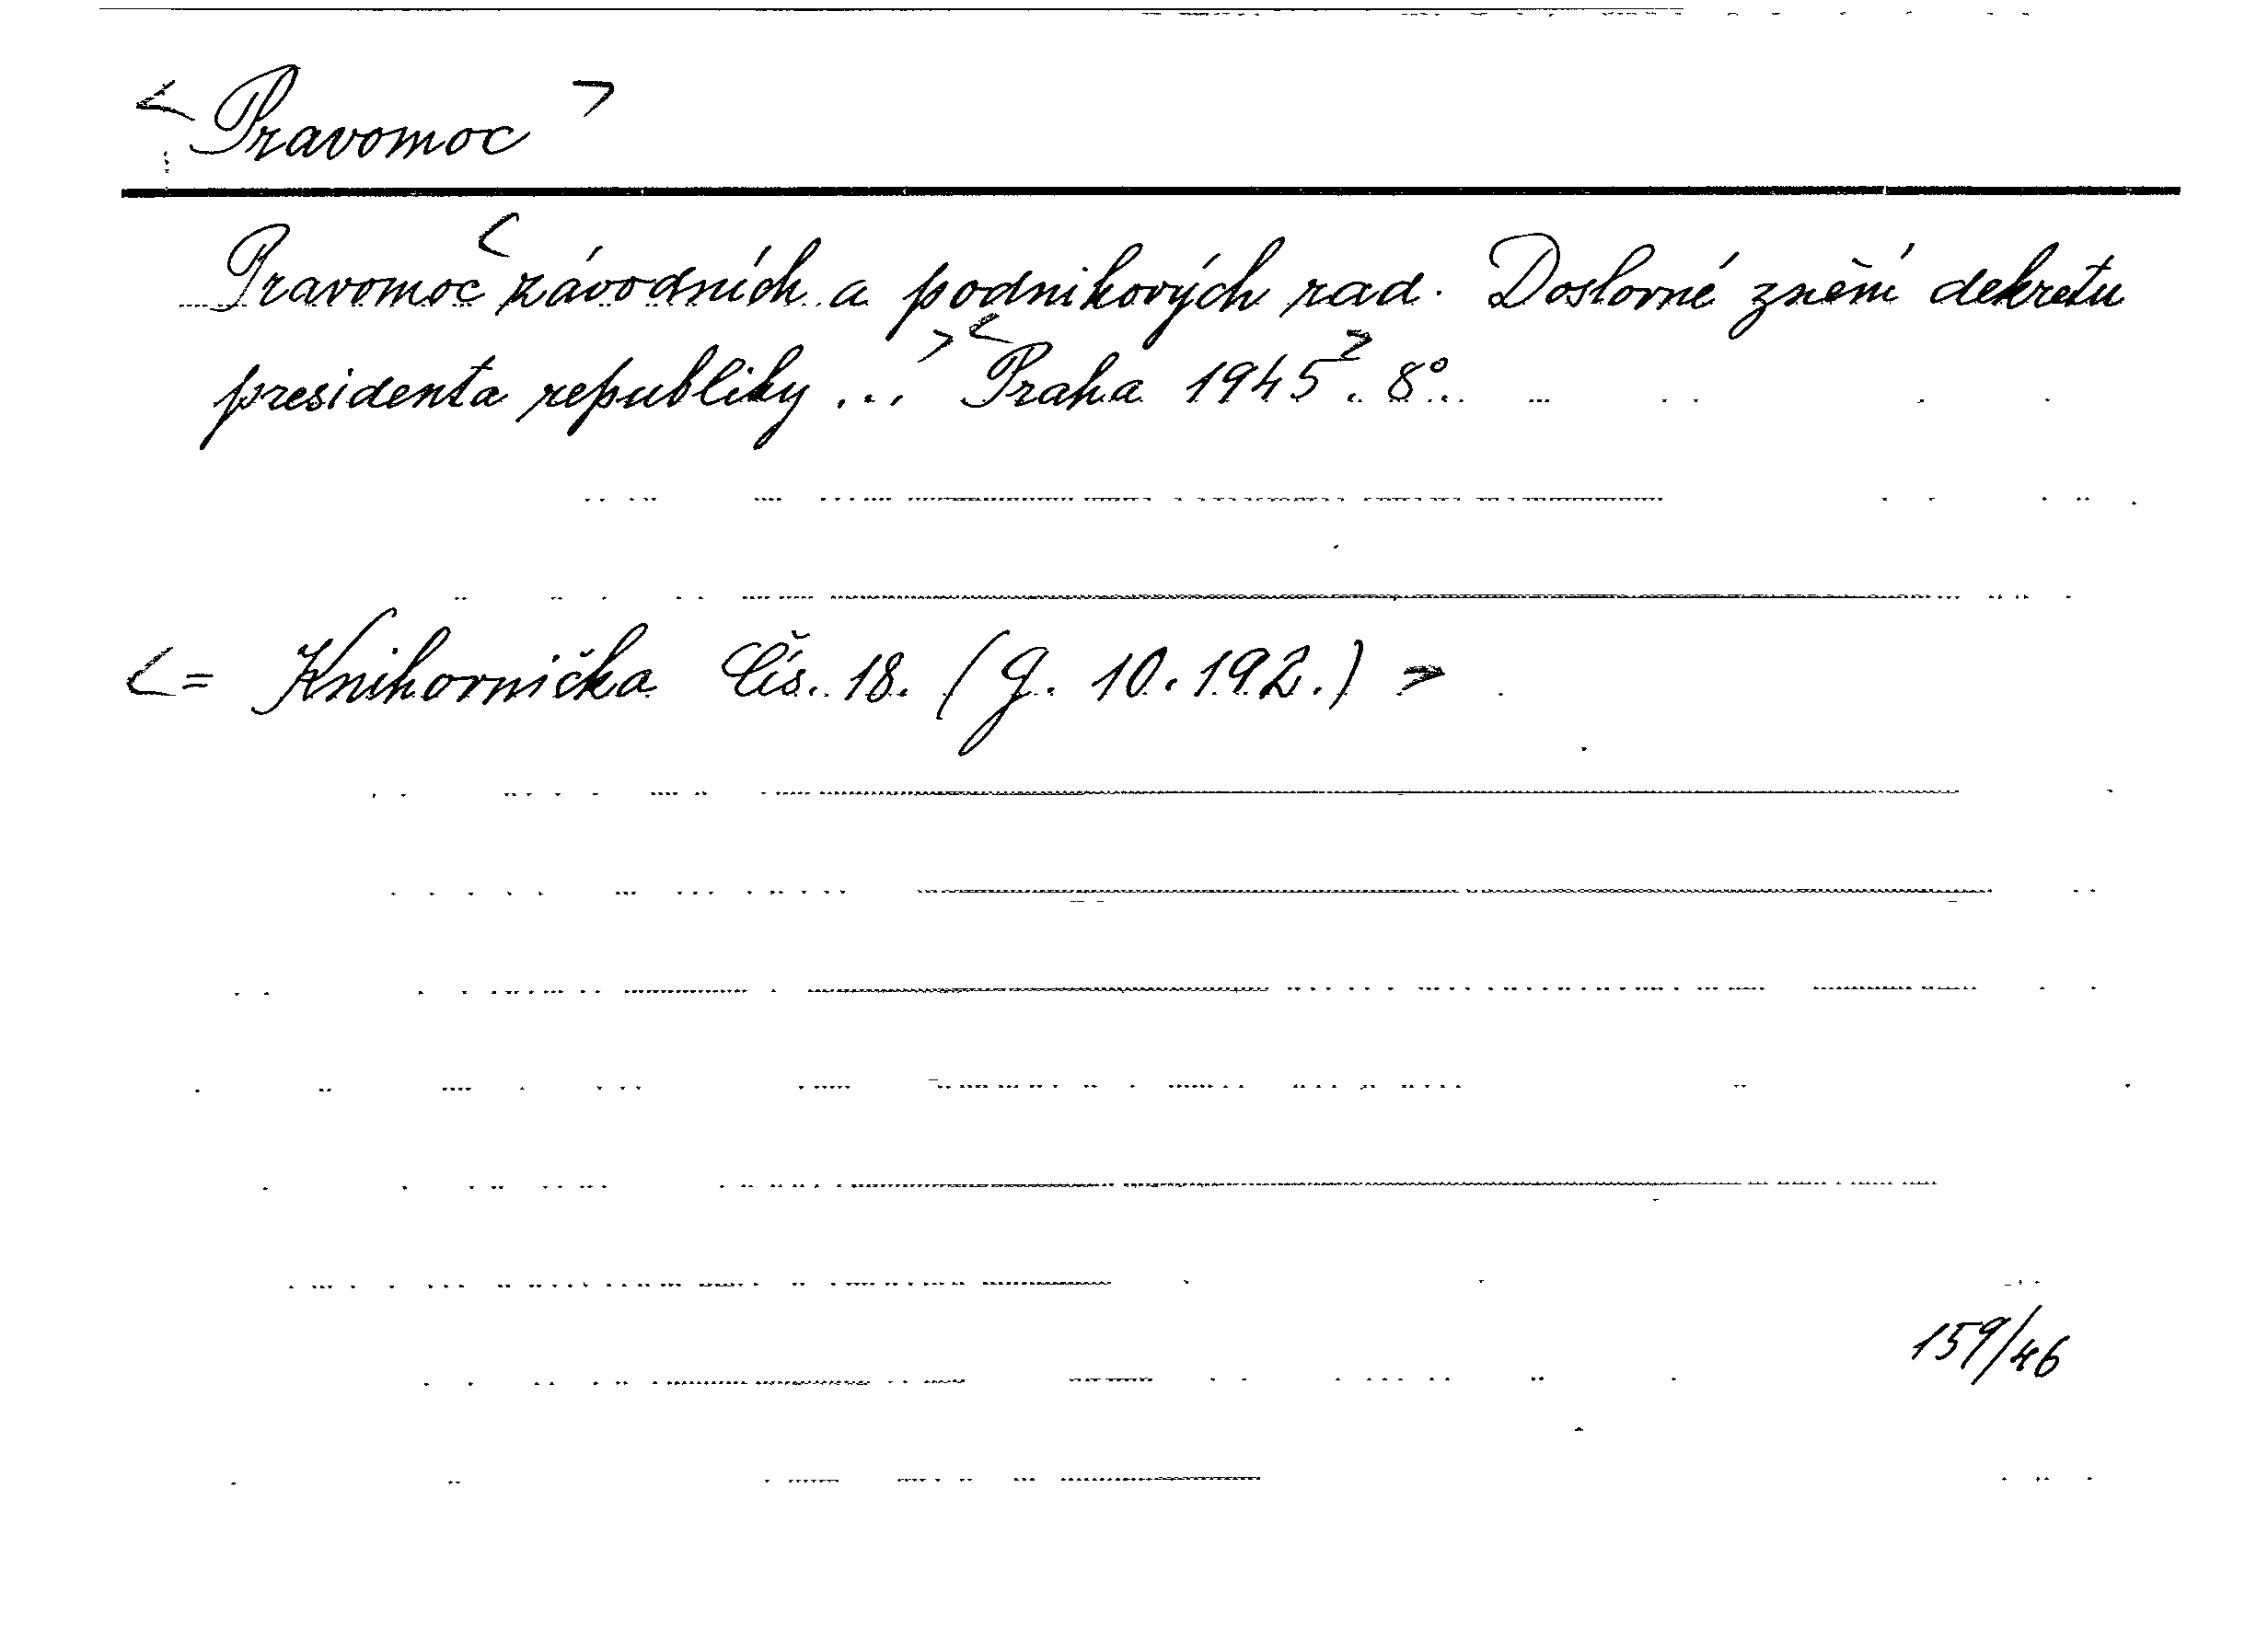 < Pravomoc >
Pravomoc < závodních a podnikových rad. Doslovné znění dekretu
presidenta republiky ... > < Praha 1945 >. 8°.
< = Knihovnička Čís. 18. (G. 10.192.) >
159/46